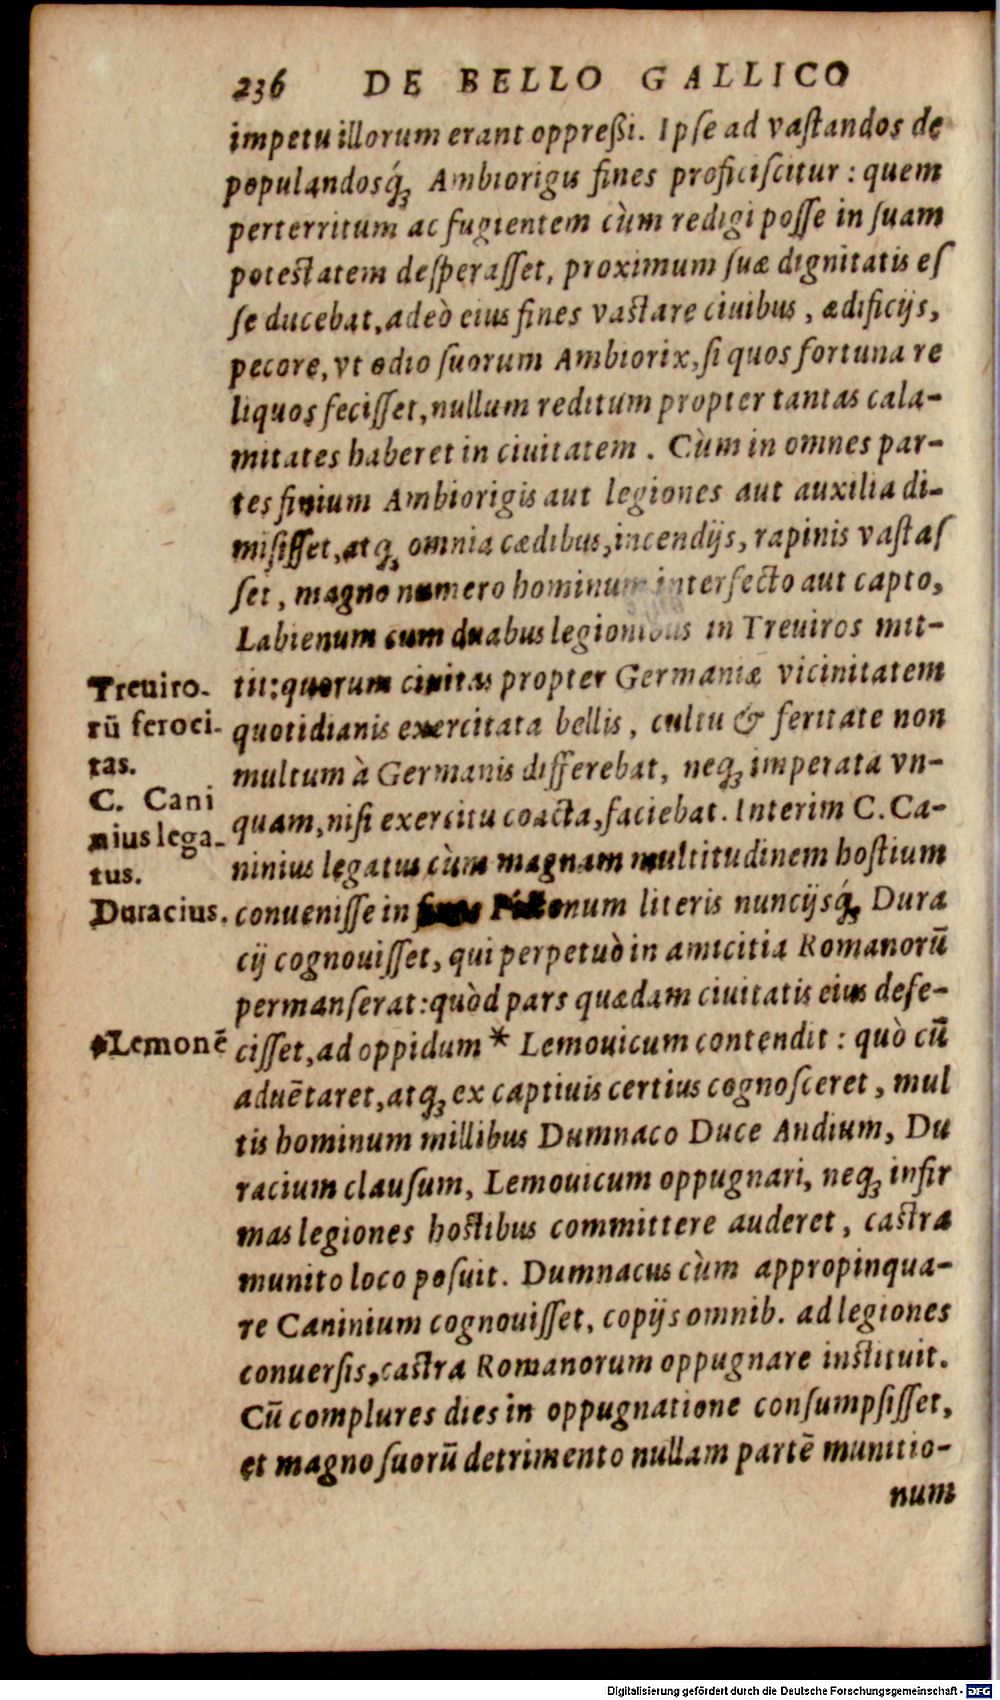 236 DE BELLO GALLICO
impetu illorum erant oppreßi. Ipſe ad vaſtandos de
populandosq́ꝫ Ambiorigis fines proficiſcitur : quem
perterritum ac fugientem cùm redigi poſſe in ſuam
poteſtatem deſperaſſet, proximum ſuæ dignitatis eſ
ſe ducebat, adeò eius fines vaſtare ciuibus , ædificijs,
pecore, vt odio ſuorum Ambiorix, ſi quos fortuna re
liquos feciſſet, nullum reditum propter tantas cala-
mitates haberet in ciuitatem . Cùm in omnes par-
tes finium Ambiorigis aut legiones aut auxilia di-
miſiſſet, atqꝫ omnia cædibus, incendijs, rapinis vaſtaſ
ſet , magno numero hominum interfecto aut capto,
Labienum cum duabus legionibus in Treuiros mit-
Treuiro-
tit: quorum ciuitas propter Germaniæ vicinitatem
rū feroci-
quotidianis exercitata bellis , cultu & feritate non
tas.
multum à Germanis differebat, neqꝫ imperata vn-
C. Cani
quam, niſi exercitu coacta, faciebat. Interim C. Ca-
nius lega-
tus.
ninius legatus cùm magnam multitudinem hoſtium
Duracius.
conueniſſe in Pictonum literis nuncijsq́ꝫ Dura
cij cognouiſſet, qui perpetuò in amicitia Romanorū
permanſerat: quòd pars quædam ciuitatis eius defe-
*Lemonē
ciſſet, ad oppidum * Lemouicum contendit : quò cū
aduētaret, atqꝫ ex captiuis certius cognoſceret , mul
tis hominum millibus Dumnaco Duce Andium, Du
racium clauſum, Lemouicum oppugnari, neqꝫ infir
mas legiones hoſtibus committere auderet , caſtra
munito loco poſuit. Dumnacus cùm appropinqua-
re Caninium cognouiſſet, copijs omnib. ad legiones
conuerſis, caſtra Romanorum oppugnare inſtituit.
Cū complures dies in oppugnatione conſumpſiſſet,
et magno ſuorū detrimento nullam partē munitio-
num
Digitalisierung gefördert durch die Deutsche Forschungsgemeinschaft - DFG